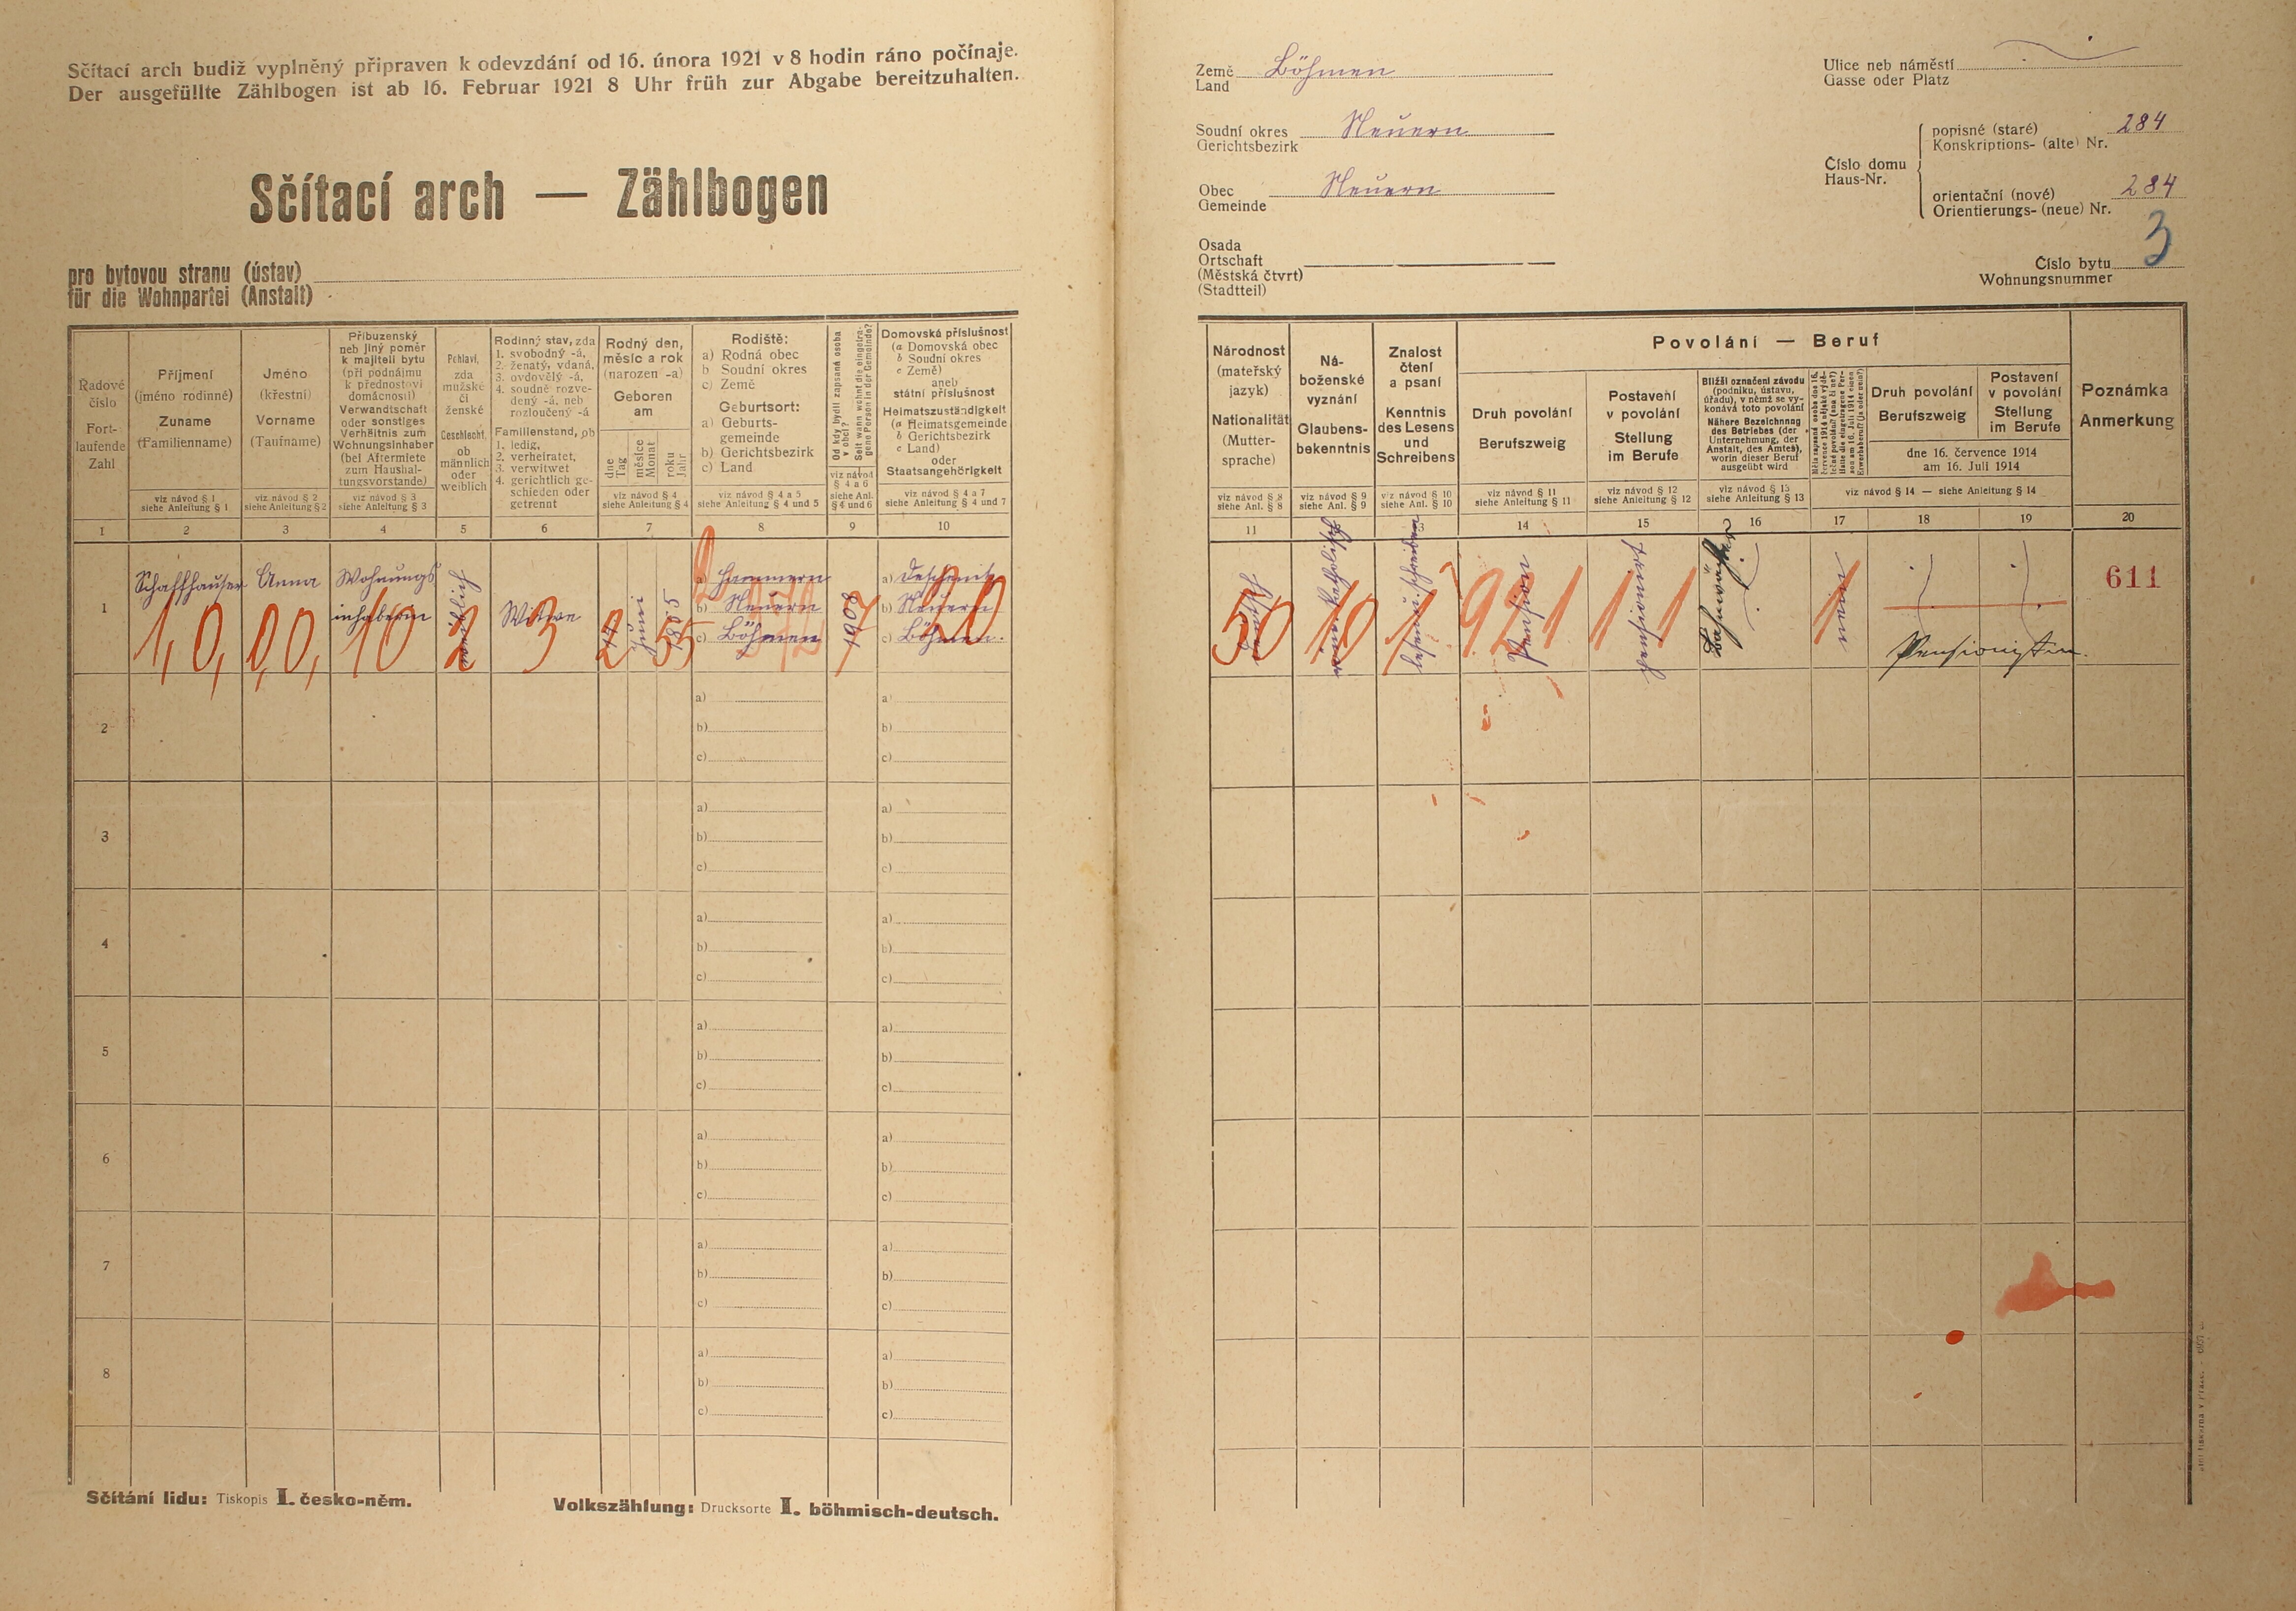 Sčítací arch budiž vyplněný připraven k odevzdání od 16. února 1921 v 8 hodin ráno počínaje.
Der ausgefüllte Zählbogen ist ab 16. Februar 1921 8 Uhr früh zur Abgabe bereitzuhalten.
Sčítací arch — Zählbogen
pro bytovou stranu (ústav)
für die Wohnpartei (Anstalt)
Země Böhmen
Land
Soudní okres Neuern
Gerichtsbezirk
Obec Neuern
Gemeinde
Osada
Ortschaft
(Městská čtvrt)
(Stadtteil)
Ulice neb náměstí
Gasse oder Platz
Číslo domu
Haus-Nr.
popisné (staré) 284
Konskriptions- (alte) Nr.
orientační (nové) 284
Orientierungs- (neue) Nr.
Číslo bytu 3
Wohnungsnummer
Řadové
číslo
Fort-
laufende
Zahl
1
Příjmení
(jméno rodinné)
Zuname
(Familienname)
viz návod § 1
siehe Anleitung § 1
2
Jméno
(křestní)
Vorname
(Taufname)
viz návod § 2
siehe Anleitung § 2
3
Příbuzenský
neb jiný poměr
k majiteli bytu
(při podnájmu
k přednostovi
domácnosti)
Verwandtschaft
oder sonstiges
Verhältnis zum
Wohnungsinhaber
(bei Aftermiete
zum Haushal-
tungsvorstande)
viz návod § 3
siehe Anleitung § 3
4
Pohlaví,
zda
mužské
či
ženské
Geschlecht,
ob
männlich
oder
weiblich
5
Rodinný stav, zda
1. svobodný -á,
2. ženatý, vdaná,
3. ovdovělý -á,
4. soudně rozve-
dený -á, neb
rozloučený -á
Familienstand, ob
1. ledig,
2. verheiratet,
3. verwitwet
4. gerichtlich ge-
schieden oder
getrennt
6
Rodný den,
měsíc a rok
(narozen -a)
Geboren
am
dne
Tag
měsíce
Monat
roku
Jahr
viz návod § 4
siehe Anleitung § 4
7
Rodiště:
a) Rodná obec
b) Soudní okres
c) Země
Geburtsort:
a) Geburts-
gemeinde
b) Gerichtsbezirk
c) Land
viz návod § 4 a 5
siehe Anleitung § 4 und 5
8
Od kdy bydlí zapsaná osoba
v obci?
Seit wann wohnt die eingetra-
gene Person in der Gemeinde?
viz návod
§ 4 a 6
siehe Anl.
§ 4 und 6
9
Domovská příslušnost
(a Domovská obec
b Soudní okres
c Země)
aneb
státní příslušnost
Heimatszuständigkeit
(a Heimatsgemeinde
b Gerichtsbezirk
c Land)
oder
Staatsangehörigkeit
viz návod § 4 a 7
siehe Anleitung § 4 und 7
10
Národnost
(mateřský
jazyk)
Nationalität
(Mutter-
sprache)
viz návod § 8
siehe Anl. § 8
11
Ná-
boženské
vyznání
Glaubens-
bekenntnis
viz návod § 9
siehe Anl. § 9
Znalost
čtení
a psaní
Kenntnis
des Lesens
und
Schreibens
viz návod § 10
siehe Anl. § 10
Povolání — Beruf
Druh povolání
Berufszweig
viz návod § 11
siehe Anleitung § 11
14
Postavení
v povolání
Stellung
im Berufe
viz návod § 12
siehe Anleitung § 12
15
Bližší označení závodu
(podniku, ústavu,
úřadu), v němž se vy-
konává toto povolání
Nähere Bezeichnung
des Betriebes (der
Unternehmung, der
Anstalt, des Amtes),
worin dieser Beruf
ausgeübt wird
viz návod § 13
siehe Anleitung § 13
16
17
Druh povolání
Berufszweig
18
Postavení
v povolání
Stellung
im Berufe
19
dne 16. července 1914
am 16. Juli 1914
viz návod § 14 — siehe Anleitung § 14
Poznámka
Anmerkung
20
1
Schaffhauser
1,0,
Anna
0,0,
Wohnungs
inhaberin
10
weiblich
2
Witwe
3
2
Juni
55
a) Hammern
b) Neuern
c) Böhmen
1908
7
a) Deschenitz
b) Neuern
c) Böhmen.
20
deutsch
50
röm. katholisch
10
lesen u. schreiben
1
Pension
921
pensioniert
11
Bahnwächter
nein
1
Pensionistin.
611
2
a)
b)
c)
a)
b)
c)
3
a)
b)
c)
a)
b)
c)
4
a)
b)
c)
a)
b)
c)
5
a)
b)
c)
a)
b)
c)
6
a)
b)
c)
a)
b)
c)
7
a)
b)
c)
a)
b)
c)
8
a)
b)
c)
a)
b)
c)
Sčítání lidu: Tiskopis I. česko-něm.
Volkszählung: Drucksorte I. böhmisch-deutsch.